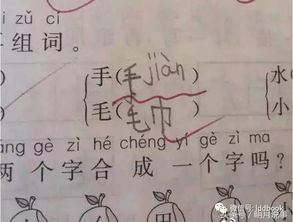 i zǔ cí
组词。
手(毛jiàn) 水
毛(毛巾) 小
āng gè zì hé chéng yí gè zì ma
两个字合成一个字吗?
田
微信号: lddbook
头条号 / 明月说事